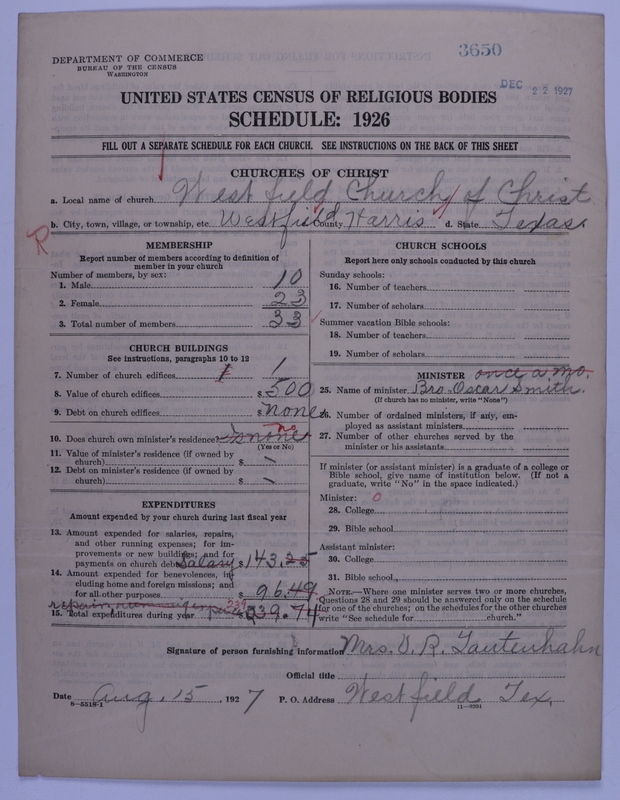 3650
DEPARTMENT OF COMMERCE
BUREAU OF THE CENSUS
WASHINGTON
DEC 22 1927
UNITED STATES CENSUS OF RELIGIOUS BODIES
SCHEDULE: 1926
FILL OUT A SEPARATE SCHEDULE FOR EACH CHURCH. SEE INSTRUCTIONS ON THE BACK OF THIS SHEET
CHURCHES OF CHRIST
a. Local name of church West field Church of Christ
b. City, town, village, or township, etc. Westfield County Harris d. State Texas
R
MEMBERSHIP
Report number of members according to definition of
member in your church
Number of members, by sex:
1. Male 10
2. Female 23
3. Total number of members 33
CHURCH BUILDINGS
See instructions, paragraphs 10 to 12
7. Number of church edifices 1 1
8. Value of church edifices $ 500
9. Debt on church edifices $ none
10. Does church own minister's residence? none no
(Yes or No)
11. Value of minister's residence (if owned by
church) $ -
12. Debt on minister's residence (if owned by
church) $ -
EXPENDITURES
Amount expended by your church during last fiscal year
13. Amount expended for salaries, repairs,
and other running expenses; for im-
provements or new buildings; and for
payments on church debt Salary $ 143.25
14. Amount expended for benevolences, in-
cluding home and foreign missions; and
for all other purposes $ 96.49
repairs, running expenses 239
15. Total expenditures during year 239.74
CHURCH SCHOOLS
Report here only schools conducted by this church
Sunday schools:
16. Number of teachers
17. Number of scholars
Summer vacation Bible schools:
18. Number of teachers
19. Number of scholars
MINISTER once a mo.
25. Name of minister Bro. Oscar Smith.
(If church has no minister, write "None")
26. Number of ordained ministers, if any, em-
ployed as assistant ministers
27. Number of other churches served by the
minister or his assistants
If minister (or assistant minister) is a graduate of a college or
Bible school, give name of institution below. (If not a
graduate, write "No" in the space indicated.)
Minister: 0
28. College
29. Bible school
Assistant minister:
30. College
31. Bible school
NOTE.—Where one minister serves two or more churches,
Questions 28 and 29 should be answered only on the schedule
for one of the churches; on the schedules for the other churches
write "See schedule for church."
Signature of person furnishing information Mrs. O. R. Tautenhahn
Official title
Date Aug. 15, 1927 P. O. Address Westfield Tex.
8-5518-1